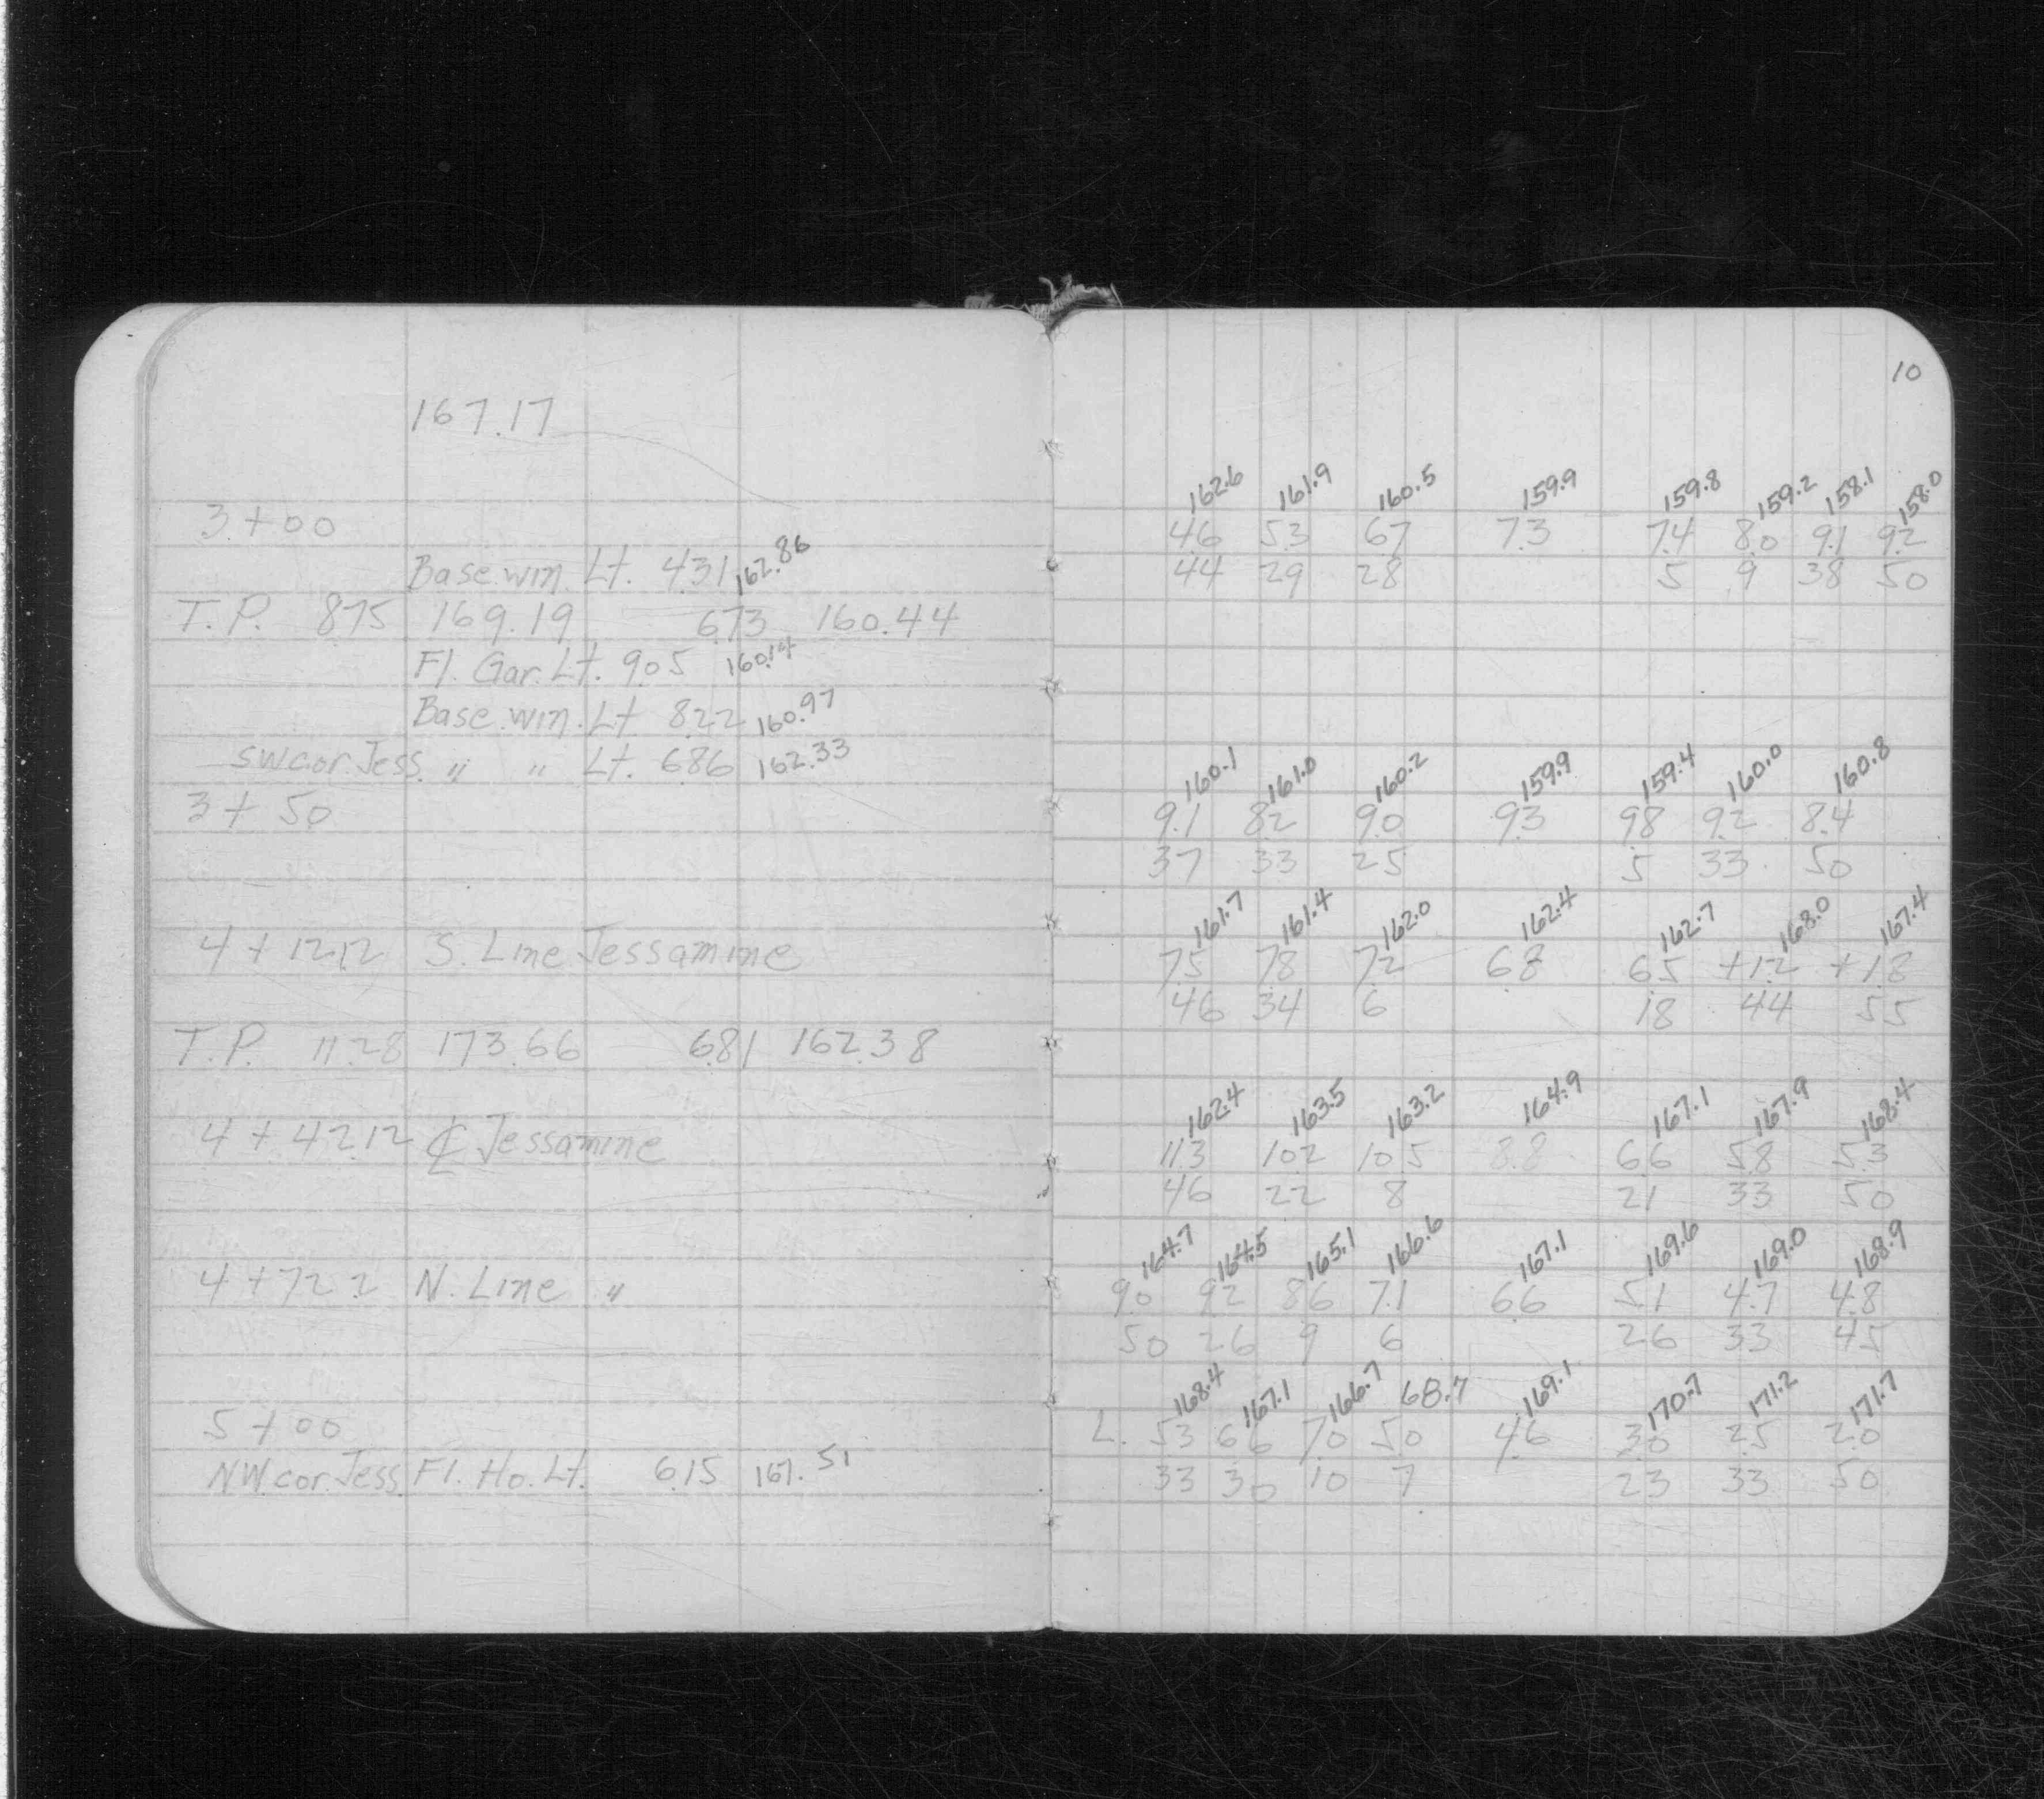 167.17
3+00
Base.win. Lt. 4.31 162.86
T.P. 8.75 169.19 6.73 160.44
Fl. Gar. Lt. 9.05 160.14
Base.win. Lt 8.22 160.97
SW cor. Jess. " " Lt. 6.86 162.33
3+50
4+12.12 S. Line Jessamine
T.P. 11.28 173.66 6.81 162.38
4+42.12 ℄ Jessamine
4+72.2 N. Line "
5+00
NW cor. Jess. Fl. Ho. Lt. 6.15 167.51
10
162.6 161.9 160.5 159.9 159.8 159.2 158.1 158.0
4.6 5.3 6.7 7.3 7.4 8.0 9.1 9.2
44 29 28 5 9 38 50
160.1 161.0 160.2 159.9 159.4 160.0 160.8
9.1 8.2 9.0 9.3 9.8 9.2 8.4
37 33 25 5 33 50
161.7 161.4 162.0 162.4 162.7 168.0 167.4
7.5 7.8 7.2 6.8 6.5 +1.2 +1.8
46 34 6 18 44 55
162.4 163.5 163.2 164.9 167.1 167.9 168.4
11.3 10.2 10.5 8.8 6.6 5.8 5.3
46 22 8 21 33 50
164.7 164.5 165.1 166.6 167.1 169.6 169.0 168.9
9.0 9.2 8.6 7.1 6.6 5.1 4.7 4.8
50 26 9 6 26 33 45
168.4 167.1 166.7 68.7 169.1 170.7 171.2 171.7
L. 5.3 6.6 7.0 5.0 4.6 3.0 2.5 2.0
33 30 10 7 23 33 50